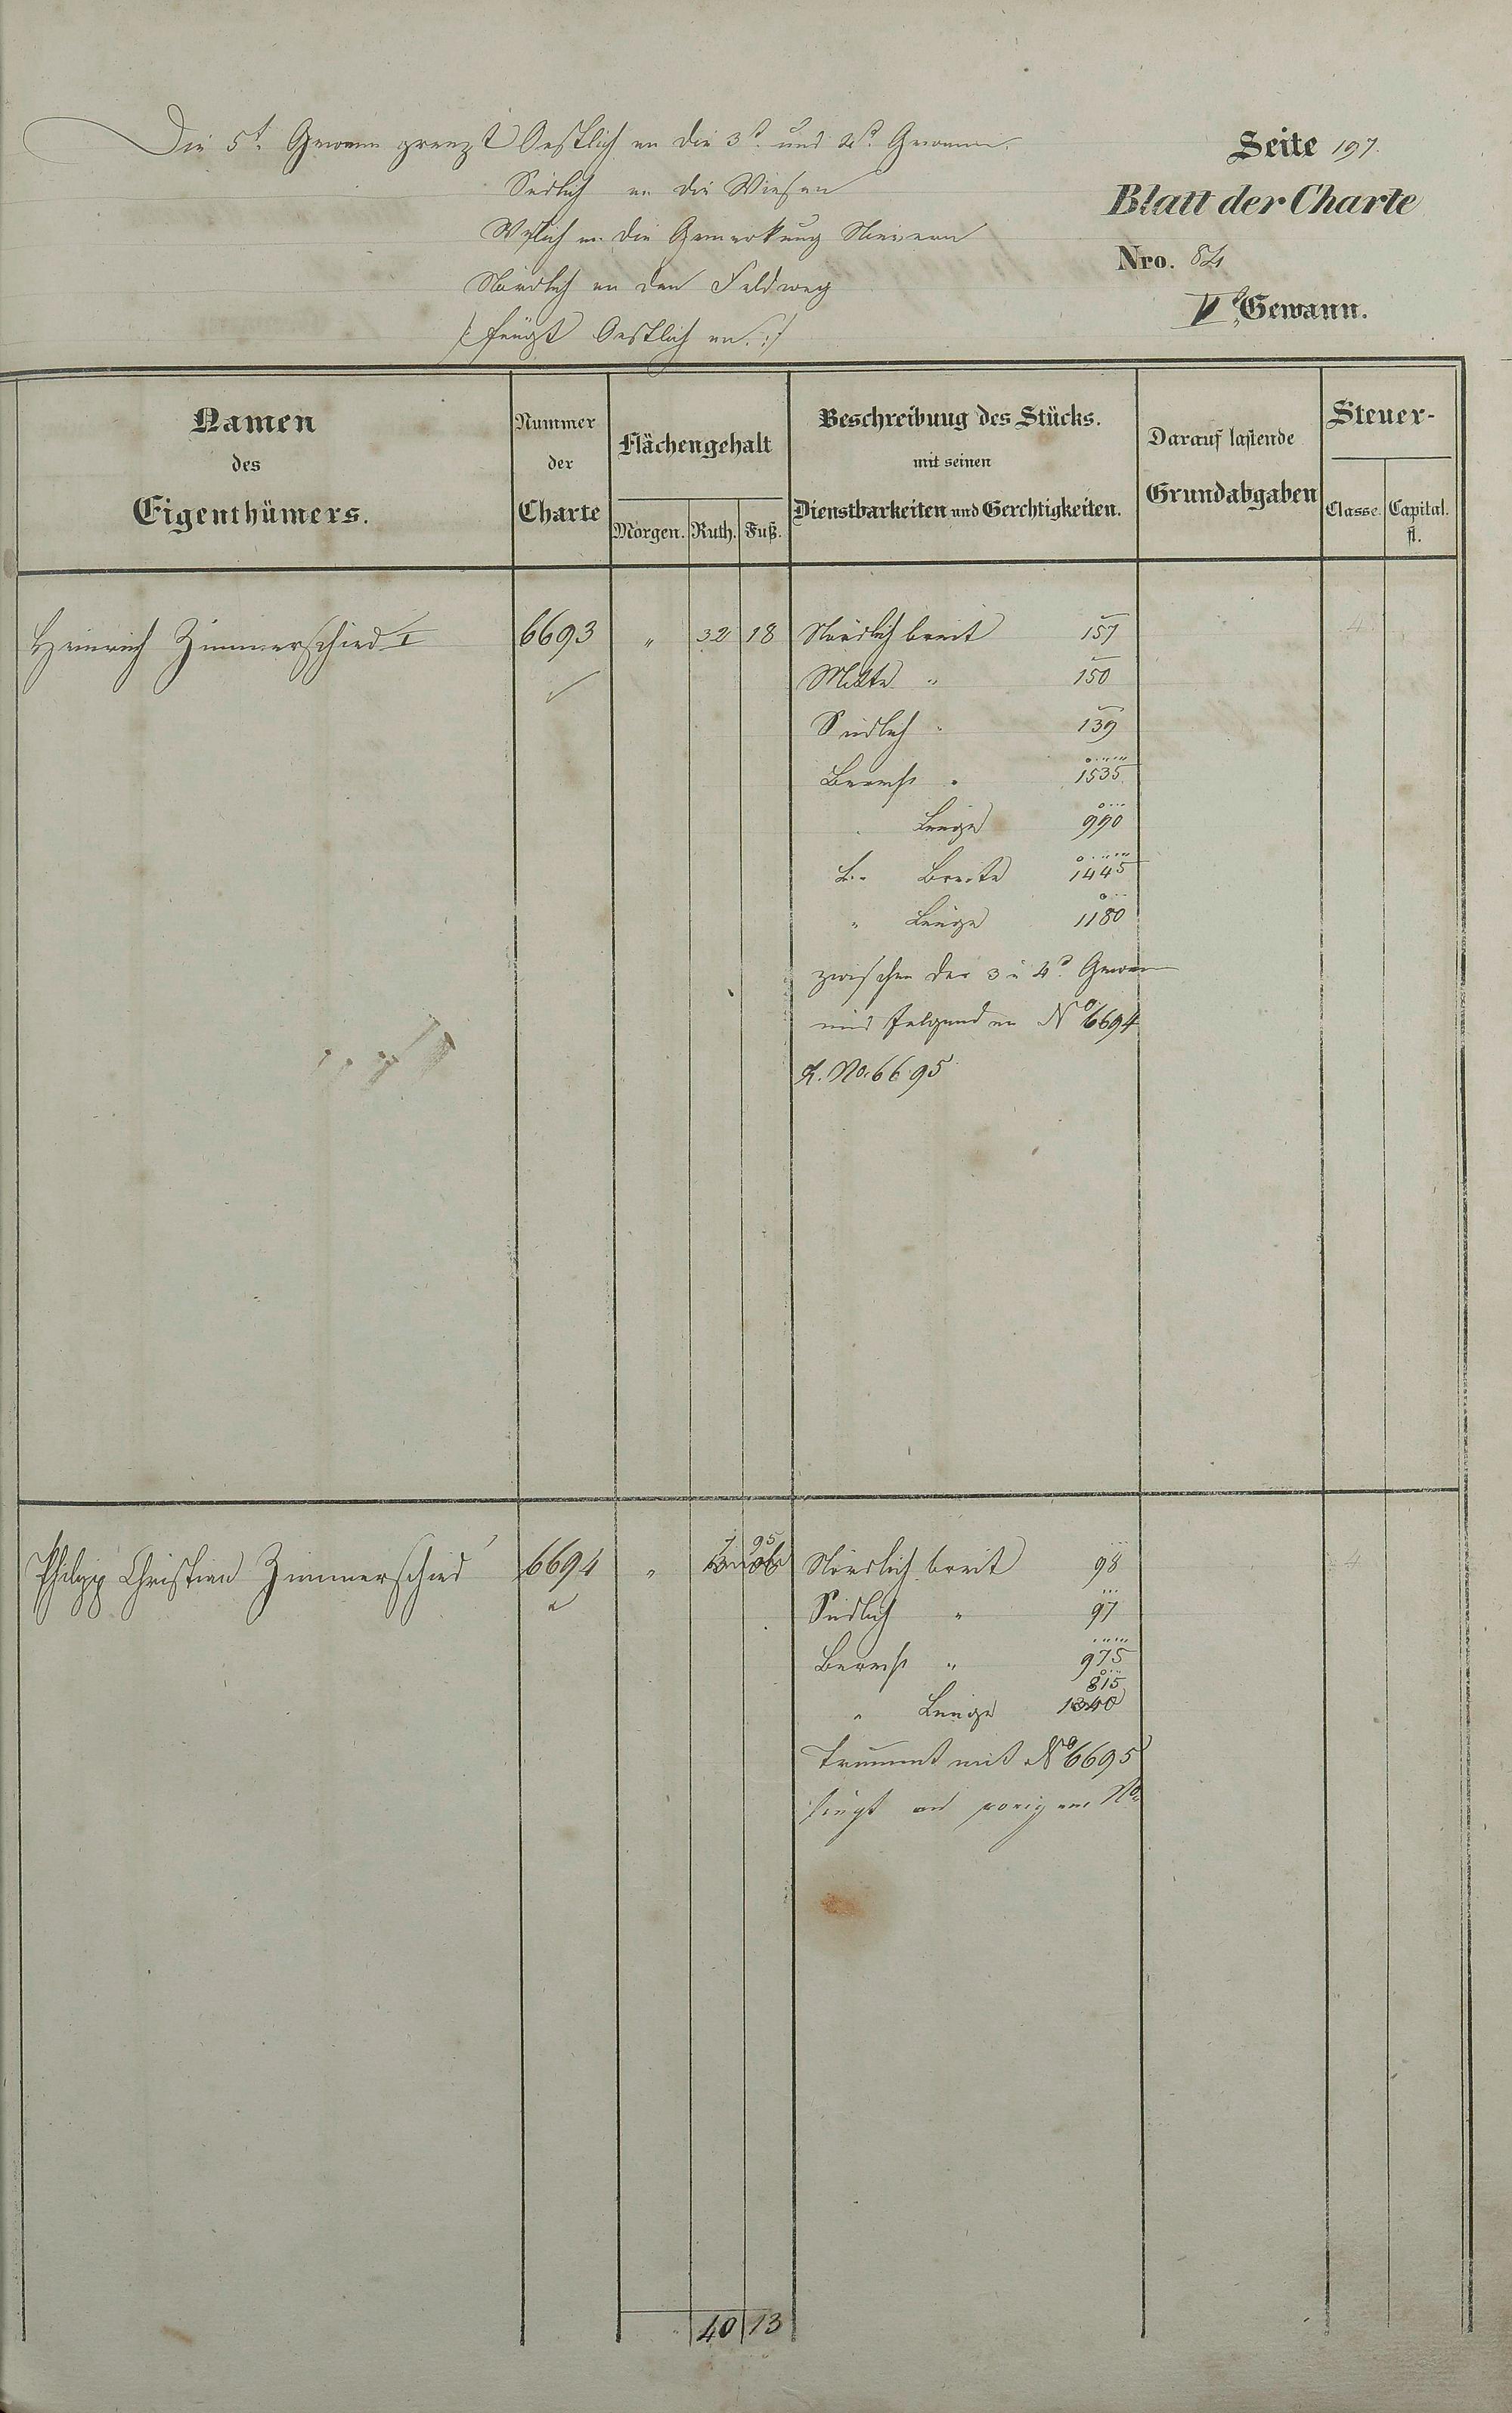 Die 5t. Gewann grenzt Oestlich an die 3t. und 4t. Gewann.
Südlich an die Wiesen
Wstlich an die Gemarkung Nievern
Nördlich an den Feldweg
/: fängt Oestlich an. :/
Seite 197.
Blatt der Charte
Nro. 84
V Gewann.
Namen
des
Eigenthümers.
Nummer
der
Charte
Flächengehalt
Morgen. Ruth. Fuß.
Beschreibung des Stücks.
mit seinen
Dienstbarkeiten und Gerchtigkeiten.
Darauf lastende
Grundabgaben
Steuer-
Classe. Capital.
fl.
Heinrich Zimmerschied I 6693 " 32 18 Nördlich breit 157 4
Mitte " 150
Südlich " 139
Berech " 1535
Länge 990
Breite 1445
" Länge 1180
zwischen der 3 u 4t. Gewann
und folgenden No 6694
u. No. 6695
Philipp Christian Zimmerschied 6694 " 7 95 Nördlich breit 98 4
Südlich " 97
Berech " 975
815
" Länge 1340
kommt mit No 6695
fängt an vorigem No
40 13